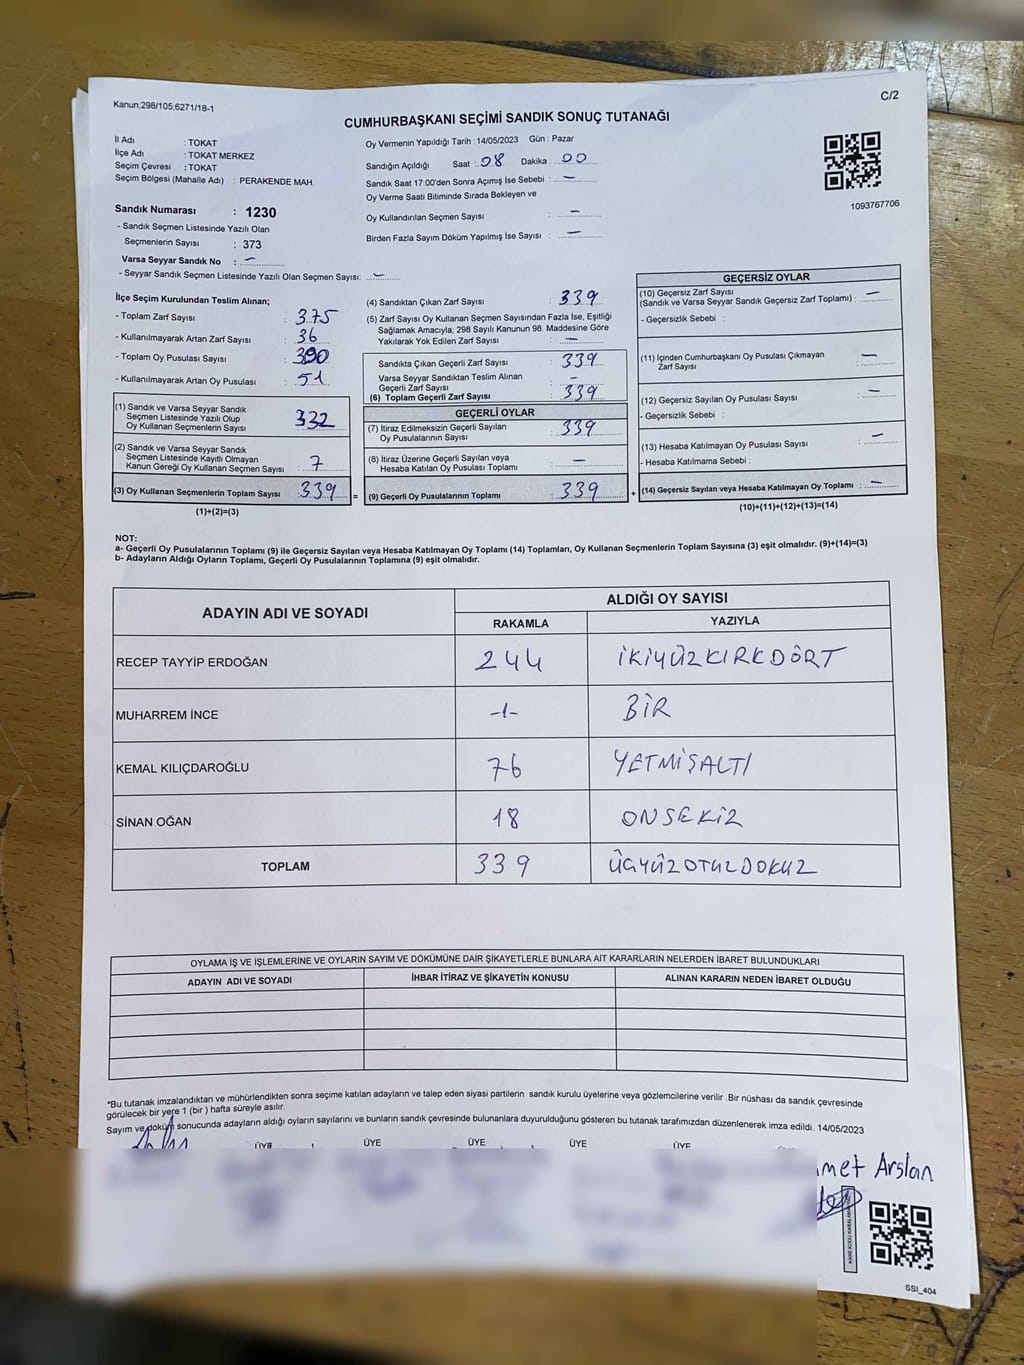 Kanun;298/105,6271/18-1
C/2
CUMHURBAŞKANI SEÇİMİ SANDIK SONUÇ TUTANAĞI
İl Adı : TOKAT
İlçe Adı : TOKAT MERKEZ
Seçim Çevresi : TOKAT
Seçim Bölgesi (Mahalle Adı) : PERAKENDE MAH.
Oy Vermenin Yapıldığı Tarih : 14/05/2023 Gün : Pazar
Sandığın Açıldığı Saat : 08 Dakika : 00
Sandık Saat 17:00'den Sonra Açımış İse Sebebi : -
Oy Verme Saati Bitiminde Sırada Bekleyen ve
Oy Kullandırılan Seçmen Sayısı : -
Birden Fazla Sayım Döküm Yapılmış İse Sayısı : -
1093767706
Sandık Numarası : 1230
- Sandık Seçmen Listesinde Yazılı Olan
Seçmenlerin Sayısı : 373
Varsa Seyyar Sandık No : -
- Seyyar Sandık Seçmen Listesinde Yazılı Olan Seçmen Sayısı: -
İlçe Seçim Kurulundan Teslim Alınan;
- Toplam Zarf Sayısı : 375
- Kullanılmayarak Artan Zarf Sayısı : 36
- Toplam Oy Pusulası Sayısı : 390
- Kullanılmayarak Artan Oy Pusulası : 51
(1) Sandık ve Varsa Seyyar Sandık
Seçmen Listesinde Yazılı Olup
Oy Kullanan Seçmenlerin Sayısı : 332
(2) Sandık ve Varsa Seyyar Sandık
Seçmen Listesinde Kayıtlı Olmayan
Kanun Gereği Oy Kullanan Seçmen Sayısı : 7
(3) Oy Kullanan Seçmenlerin Toplam Sayısı : 339 =
(1)+(2)=(3)
(4) Sandıktan Çıkan Zarf Sayısı : 339
(5) Zarf Sayısı Oy Kullanan Seçmen Sayısından Fazla İse, Eşitliği
Sağlamak Amacıyla; 298 Sayılı Kanunun 98. Maddesine Göre
Yakılarak Yok Edilen Zarf Sayısı : -
Sandıkta Çıkan Geçerli Zarf Sayısı : 339
Varsa Seyyar Sandıktan Teslim Alınan
Geçerli Zarf Sayısı : -
(6) Toplam Geçerli Zarf Sayısı : 339
GEÇERLİ OYLAR
(7) İtiraz Edilmeksizin Geçerli Sayılan
Oy Pusulalarının Sayısı : 339
(8) İtiraz Üzerine Geçerli Sayılan veya
Hesaba Katılan Oy Pusulası Toplamı : -
(9) Geçerli Oy Pusulalarının Toplamı : 339 +
GEÇERSİZ OYLAR
(10) Geçersiz Zarf Sayısı
(Sandık ve Varsa Seyyar Sandık Geçersiz Zarf Toplamı) : -
- Geçersizlik Sebebi :
(11) İçinden Cumhurbaşkanı Oy Pusulası Çıkmayan
Zarf Sayısı : -
(12) Geçersiz Sayılan Oy Pusulası Sayısı : -
- Geçersizlik Sebebi :
(13) Hesaba Katılmayan Oy Pusulası Sayısı : -
- Hesaba Katılmama Sebebi :
(14) Geçersiz Sayılan veya Hesaba Katılmayan Oy Toplamı : -
(10)+(11)+(12)+(13)=(14)
NOT:
a- Geçerli Oy Pusulalarının Toplamı (9) ile Geçersiz Sayılan veya Hesaba Katılmayan Oy Toplamı (14) Toplamları, Oy Kullanan Seçmenlerin Toplam Sayısına (3) eşit olmalıdır. (9)+(14)=(3)
b- Adayların Aldığı Oyların Toplamı, Geçerli Oy Pusulalarının Toplamına (9) eşit olmalıdır.
ADAYIN ADI VE SOYADI
ALDIĞI OY SAYISI
RAKAMLA YAZIYLA
RECEP TAYYİP ERDOĞAN 244 İKİYÜZKIRKDÖRT
MUHARREM İNCE -1- BİR
KEMAL KILIÇDAROĞLU 76 YETMİŞALTI
SİNAN OĞAN 18 ONSEKİZ
TOPLAM 339 ÜÇYÜZOTUZDOKUZ
OYLAMA İŞ VE İŞLEMLERİNE VE OYLARIN SAYIM VE DÖKÜMÜNE DAİR ŞİKAYETLERLE BUNLARA AİT KARARLARIN NELERDEN İBARET BULUNDUKLARI
ADAYIN ADI VE SOYADI İHBAR İTİRAZ VE ŞİKAYETİN KONUSU ALINAN KARARIN NEDEN İBARET OLDUĞU
*Bu tutanak imzalandıktan ve mühürlendikten sonra seçime katılan adayların ve talep eden siyasi partilerin sandık kurulu üyelerine veya gözlemcilerine verilir .Bir nüshası da sandık çevresinde
görülecek bir yere 1 (bir ) hafta süreyle asılır.
Sayım ve döküm sonucunda adayların aldığı oyların sayılarını ve bunların sandık çevresinde bulunanlara duyurulduğunu gösteren bu tutanak tarafımızdan düzenlenerek imza edildi. 14/05/2023
ÜYE ÜYE ÜYE ÜYE ÜYE
Arslan
SSİ_404